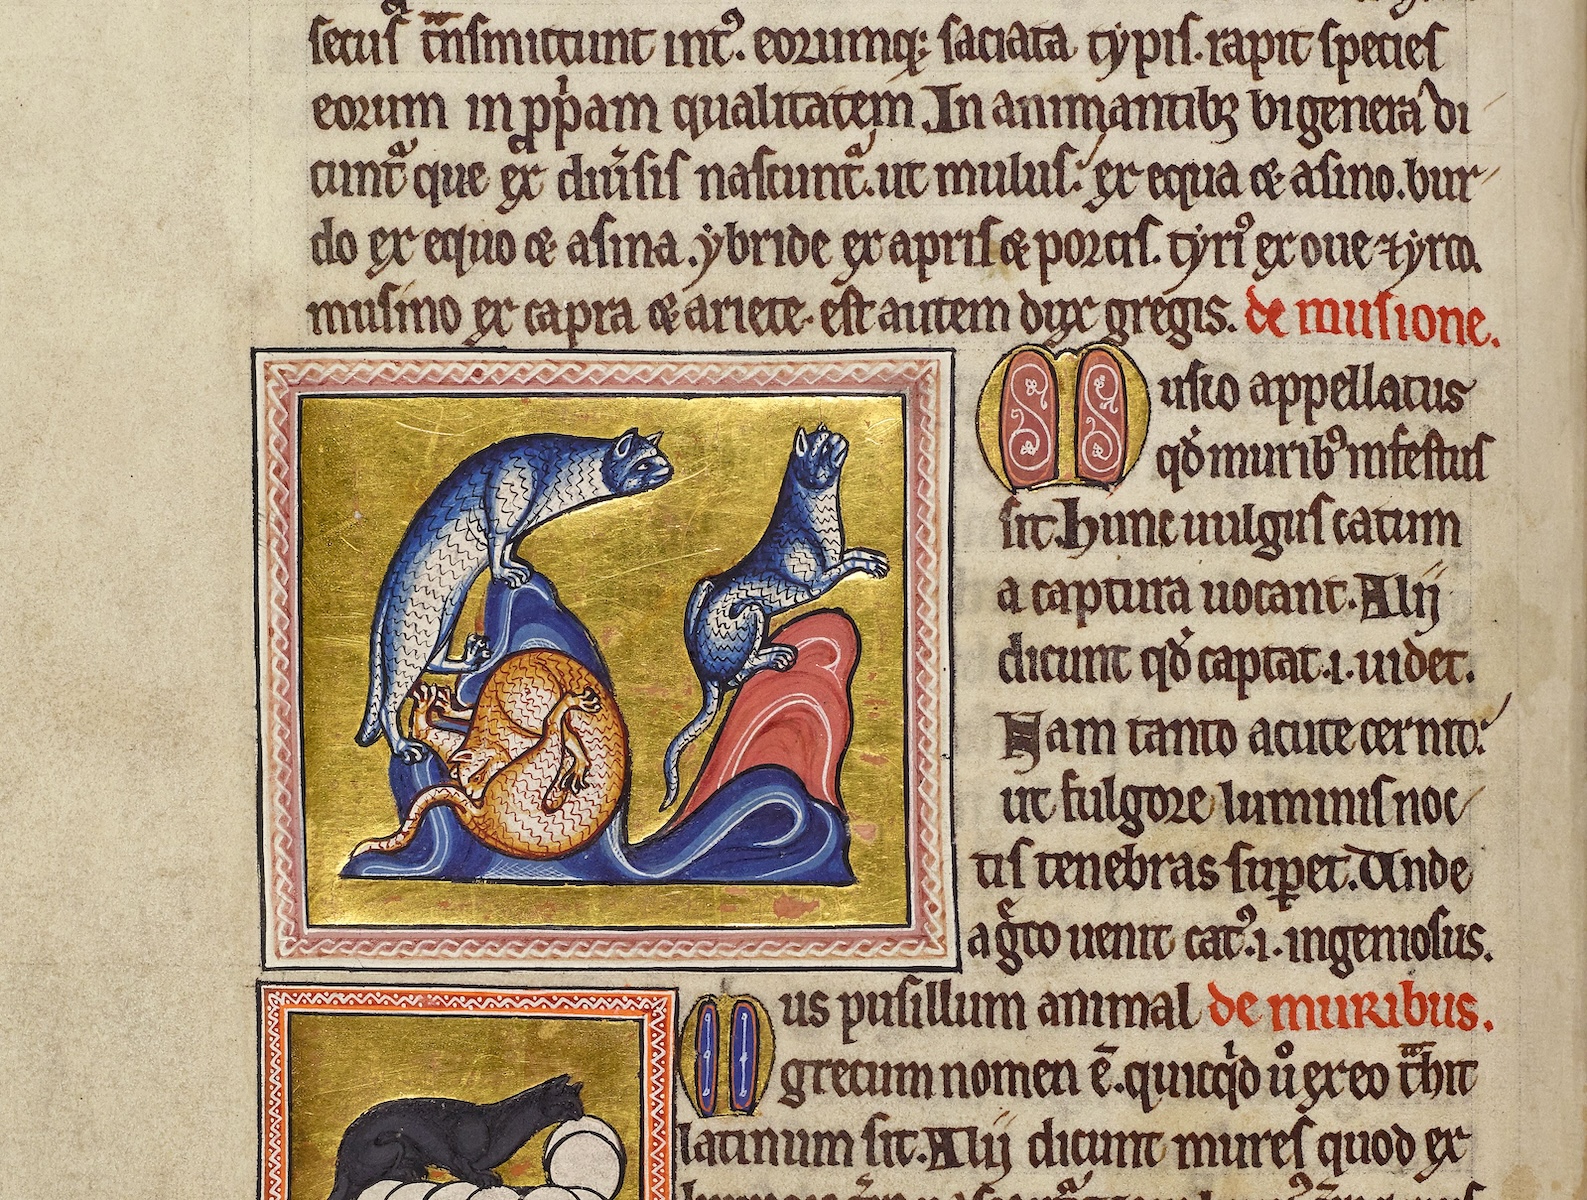 secus tͣnsmittunt intˀ. eorumq; saciata typis. rapit species
eorum in ppͥam qualitatem. In animantibꝫ bigenera di
cuntᷓ que ex diuͥsis nascuntᷓ. ut mulus: ex equa & asino. bur
do ex equo & asina. ybride ex apris & porcis. tyriˀ ex oue ⁊ yrco.
musino ex capra & ariete. est autem dux gregis. de musione.
Musio appellatus
qđ muribˀ infestus
sit. Hunc uulgus catum
a captura uocant. Alij
dicunt qđ captat .i. uidet.
Nam tanto acute cernit:
ut fulgore luminis noc
tis tenebras suꝑet. Unde
a gͤco uenit catˀ .i. ingeniosus.
Mus pusillum animal de muribus.
grecum nomen ē. quicqͥd uͦ ex eo tͣhit
latinum sit. Alij dicunt mures quod ex